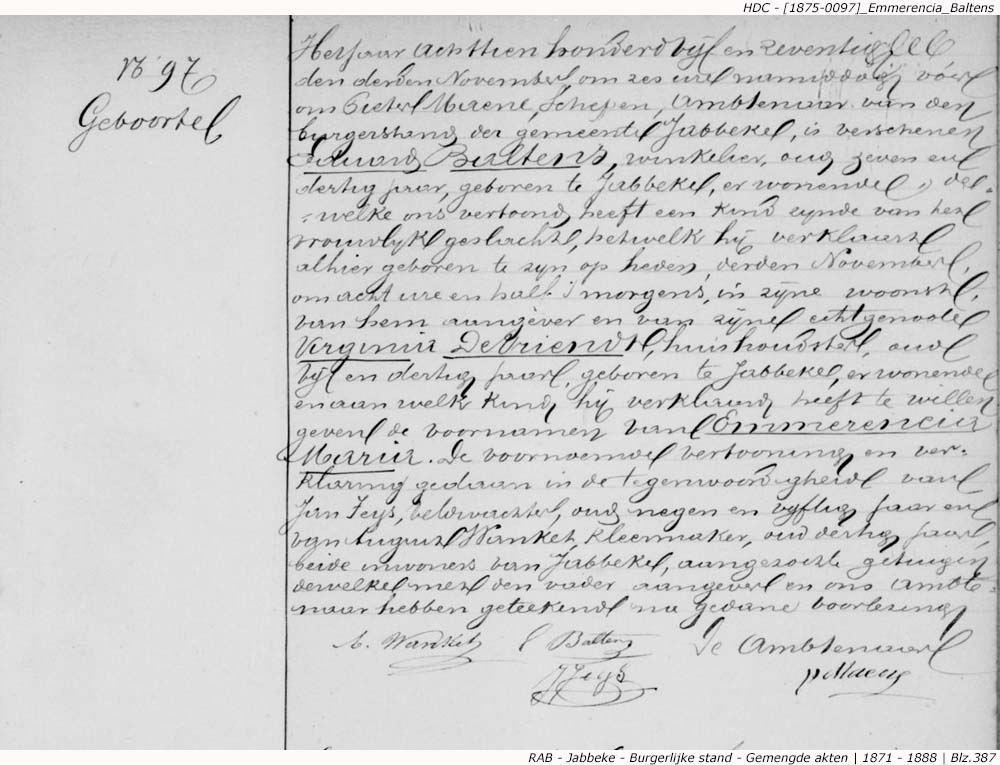 HDC - [1875-0097]_Emmerencia_Baltens
N° 97
Geboorte
Het jaar achttien honderd vijf en zeventig
den derden November, om zes ure namiddag, vóór
ons Pieter Maene, Schepen, Ambtenaar van den
burgerstand der gemeente Jabbeke, is verschenen
Eduard Baltens, winkelier, oud zeven en
dertig jaar, geboren te Jabbeke, er wonende, de-
=welke ons vertoond heeft een kind eynde van het
vrouwlyk geslacht, hetwelk hij verklaart
alhier geboren te zyn op heden, derden November,
om acht ure en half 's morgens, in zijne woonst,
van hem aangever en van zijne echtgenoote
Virginia DeVriendt, huishoudster, oud
vijf en dertig jaar, geboren te Jabbeke, er wonende
en aan welk kind hij verklaard heeft te willen
geven de voornamen van Emmerencia
Maria. De voornoemde vertooning en ver-
klaring gedaan in de tegenwoordigheid van
Jan Feys, veldwachter, oud negen en vyftig jaar en
van August Wanket, kleermaker, oud dertig jaar,
beide inwoners van Jabbeke, aangezochte getuigen
dewelke met den vader aangever en ons Ambte-
naar hebben geteekend na gedane voorlezing
A. Wanket E Baltens De Ambtenaar
J Feys p Maene
RAB - Jabbeke - Burgerlijke stand - Gemengde akten | 1871 - 1888 | Blz.387